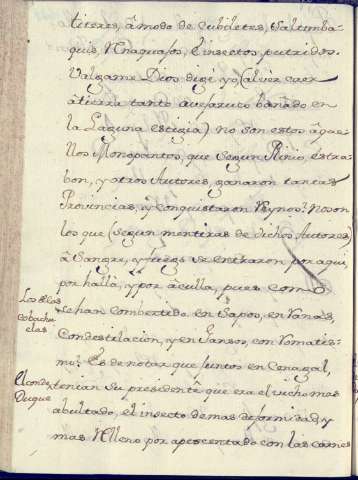 titeres, â modo de cubiletes, Saltimba-
quis, Renaquajos, è insectos putridos.
Valgame Dios dige yo, (al vèr caer
â tierra tanto avejaruco bañado en
la Laguna estigia) no son estos aque-
llos Monopantos, que segun Plinio, estra-
bon, y otros Autores, ganaron tantas
Provincias, y conquistaron Reynos? No son
los que (segun mentiras de dichos Autores)
â Sangre, y fuego se entraron por aqui,
por hallâ, y por âculla, pues como
Los
cobachu-
elas
se han combertido en Sapos, en Ranas,
Con destilacion, y en Gansos, con Romatis-
mo? Es de notar que juntos en Cenagal,
El conde
Duque
tenian su presidente que era el vicho mas
abultado, el insecto de mas deformidad, y
mas relleno por apacentado con las carnes